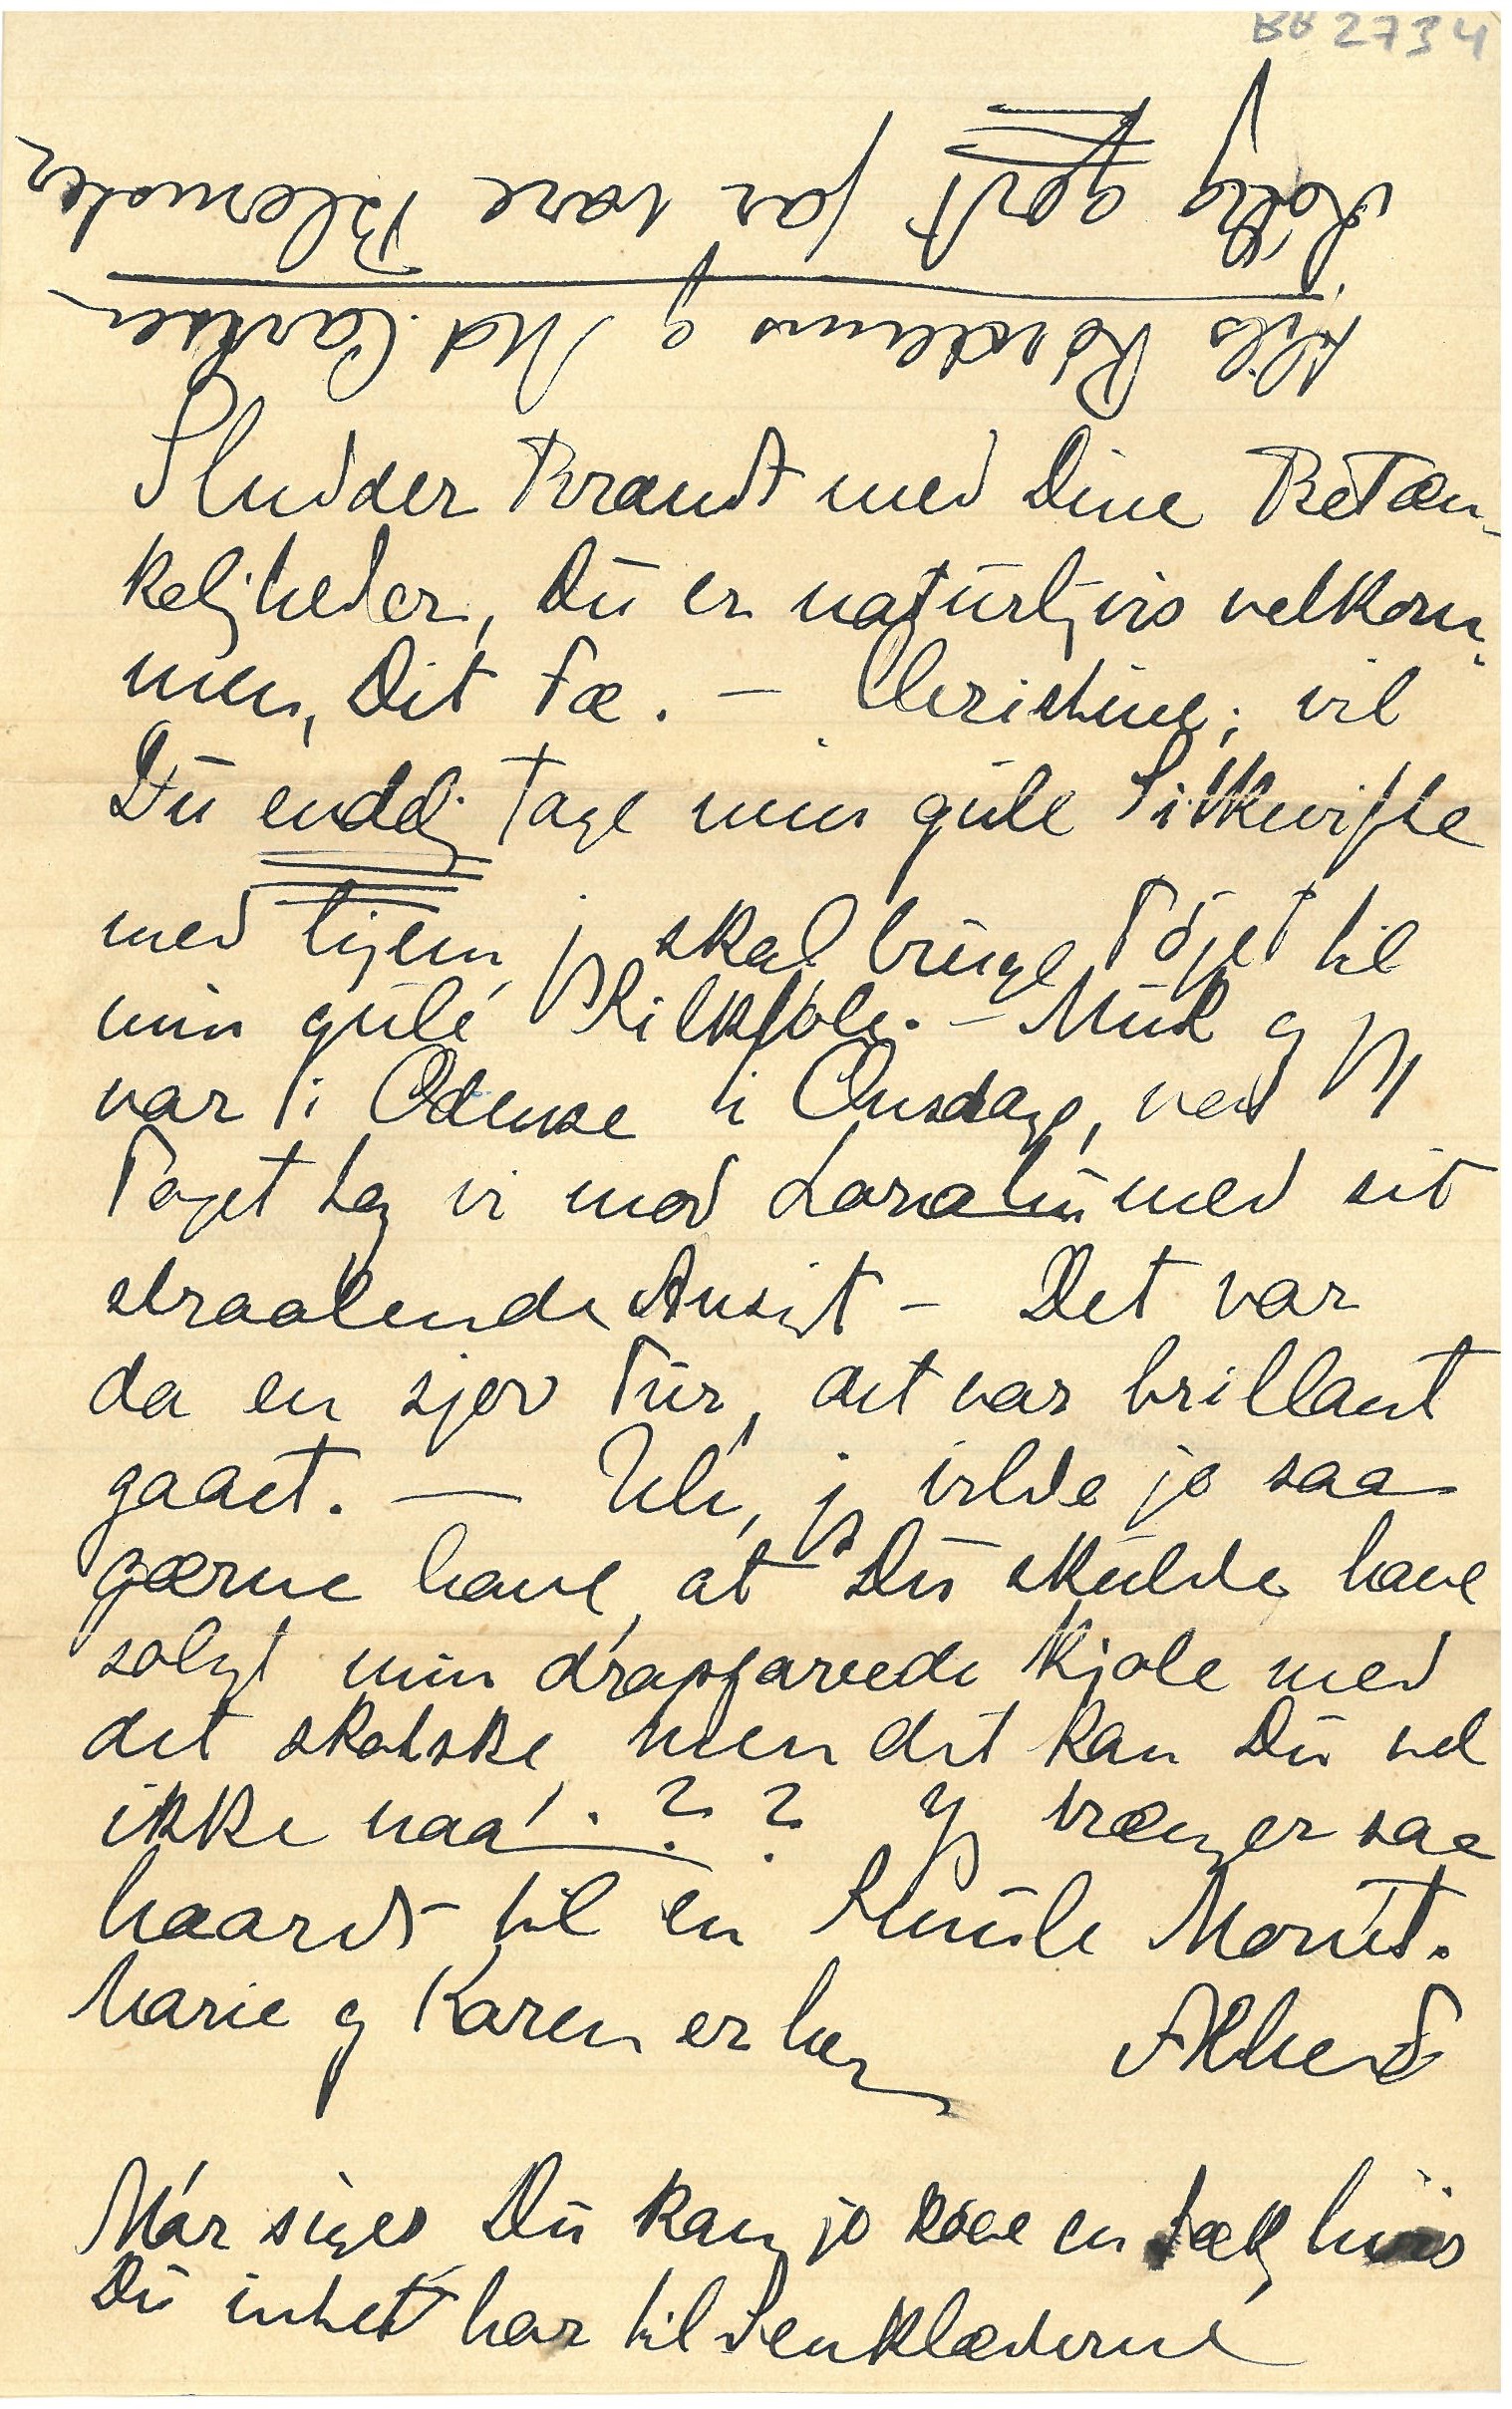 BB 2734
Hils Rørdams og Md. Carlsen
Kold godt paa vore Blomster
Sludder Brandt med Dine Betæn-
keligheder, Du er naturligvis velkom-
men, Dit Fæ. – Christine; vil
Du endelig tage min gule Silkevifte
med hjem, jeg skal bruge Tøjet til
min gule Silkekjole. – Muk og jeg
var i Odense i Onsdags, ved
Toget tog vi mod Loralu med sit
straalende Ansigt – Det var
da en sjov Tur, det var brillant
gaaet. — Uh, jeg vilde jo saa
gærne have, at Du skulde have
solgt min drapfarvede Kjole med
det skotske, men det kan Du vel
ikke naa'.?? Jeg trænger saa
haardt til en Smule Mønt.
Marie og Karen er her
Alhed
Mor siger Du kan jo købe en Sæk hvis
Du intet har til Senklæderne